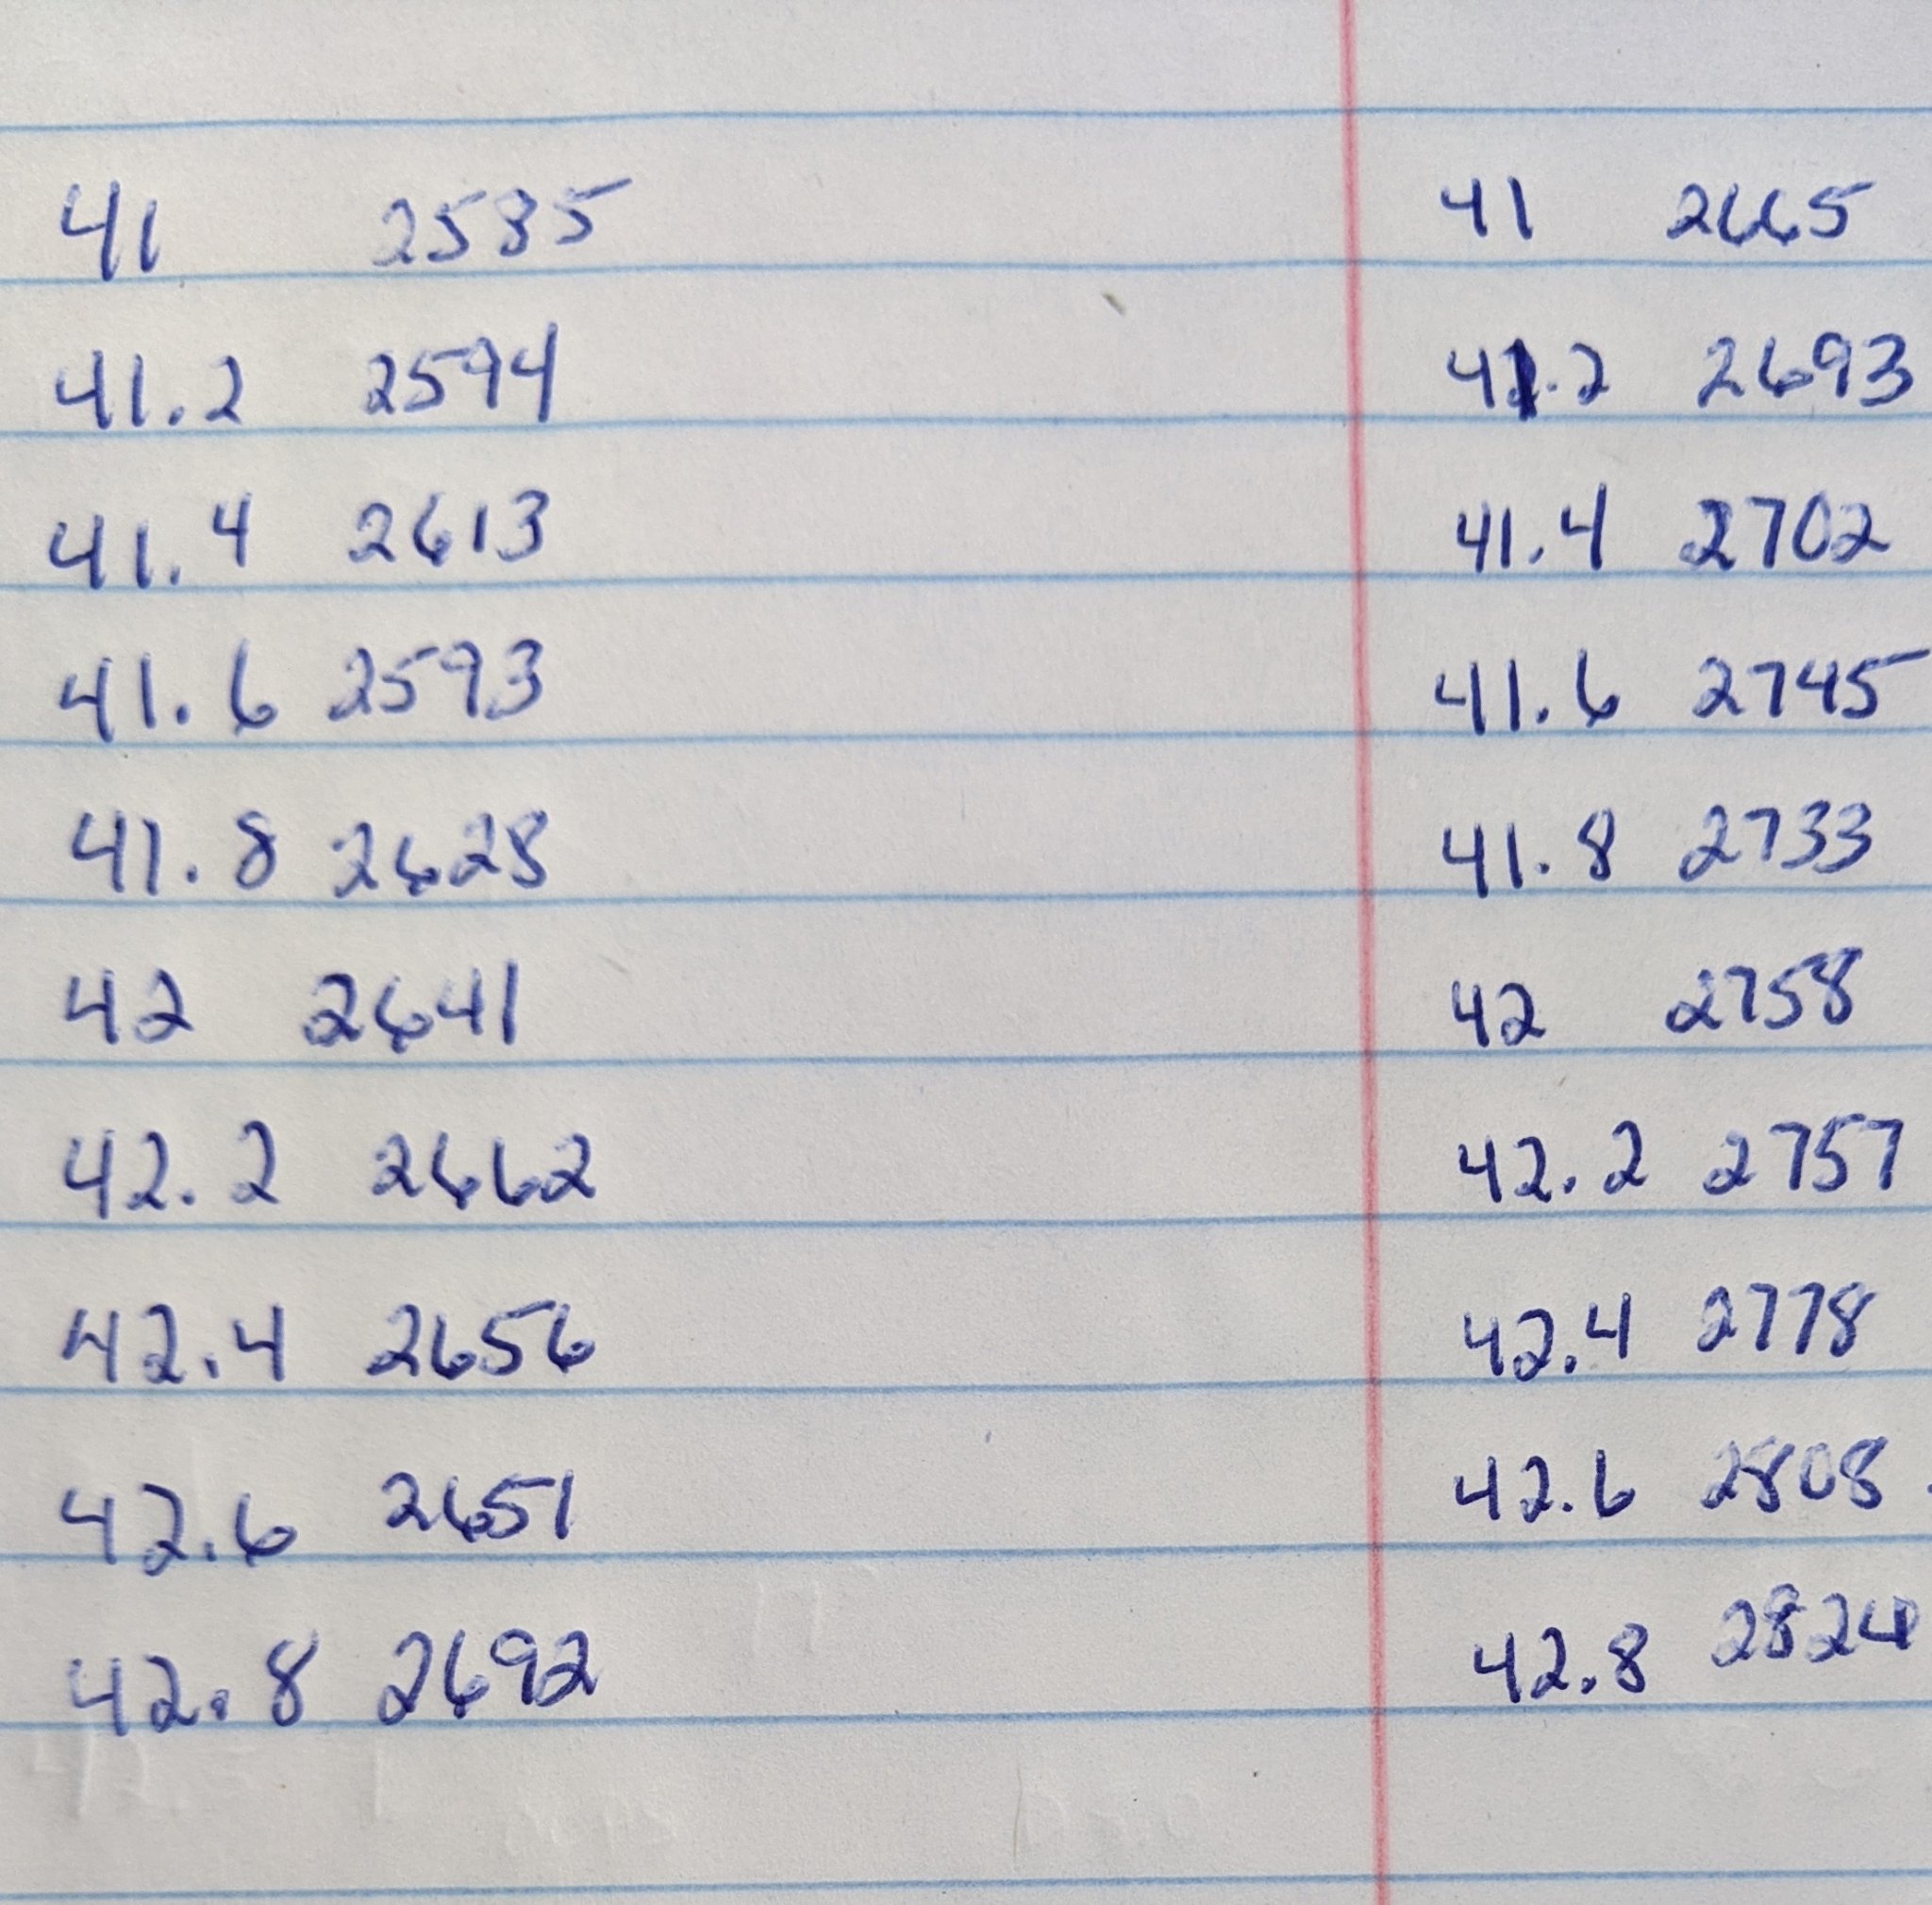 41 2585 41 2665
41.2 2594 41.2 2693
41.4 2613 41.4 2702
41.6 2593 41.6 2745
41.8 2628 41.8 2733
42 2641 42 2758
42.2 2662 42.2 2757
42.4 2656 42.4 2778
42.6 2651 42.6 2808
42.8 2692 42.8 2824